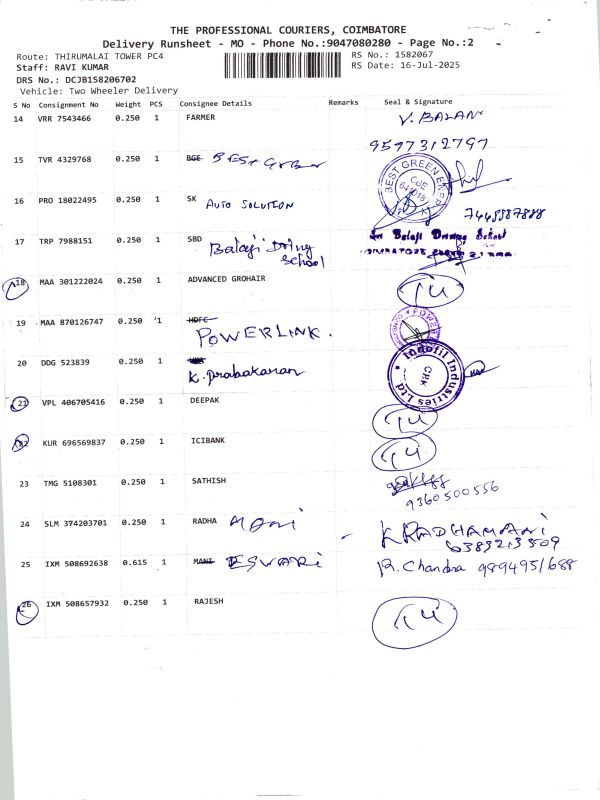 THE PROFESSIONAL COURIERS, COIMBATORE
Delivery Runsheet - MO - Phone No.:9047080280 - Page No.:2
Route: THIRUMALAI TOWER PC4
RS No.: 1582067
Staff: RAVI KUMAR
RS Date: 16-Jul-2025
DRS No.: DCJB158206702
Vehicle: Two Wheeler Delivery
S No Consignment No Weight PCS Consignee Details Remarks Seal & Signature
14 VRR 7543466 0.250 1 FARMER V. BALAN
9597312797
15 TVR 4329768 0.250 1 BGE BEST
BEST GREEN
16 PRO 18022495 0.250 1 SK AUTO SOLUTION
17 TRP 7988151 0.250 1 SBD Balaji Driving School
Sri Balaji Driving School
18 MAA 301222024 0.250 1 ADVANCED GROHAIR
19 MAA 870126747 1 0.250 1 HDFC POWERLINK.
POWER
20 DDG 523839 0.250 1 K. prabakaran
Indofil Industries Ltd
21 VPL 406705416 0.250 1 DEEPAK
22 KUR 696569837 0.250 1 ICIBANK
23 TMG 5108301 0.250 1 SATHISH
9360500556
24 SLM 374203701 0.250 1 RADHA Mani K RADHAMANI
6389213509
25 IXM 508692638 0.615 1 MANI ESWARI R. Chandra 9894951688
26 IXM 508657932 0.250 1 RAJESH